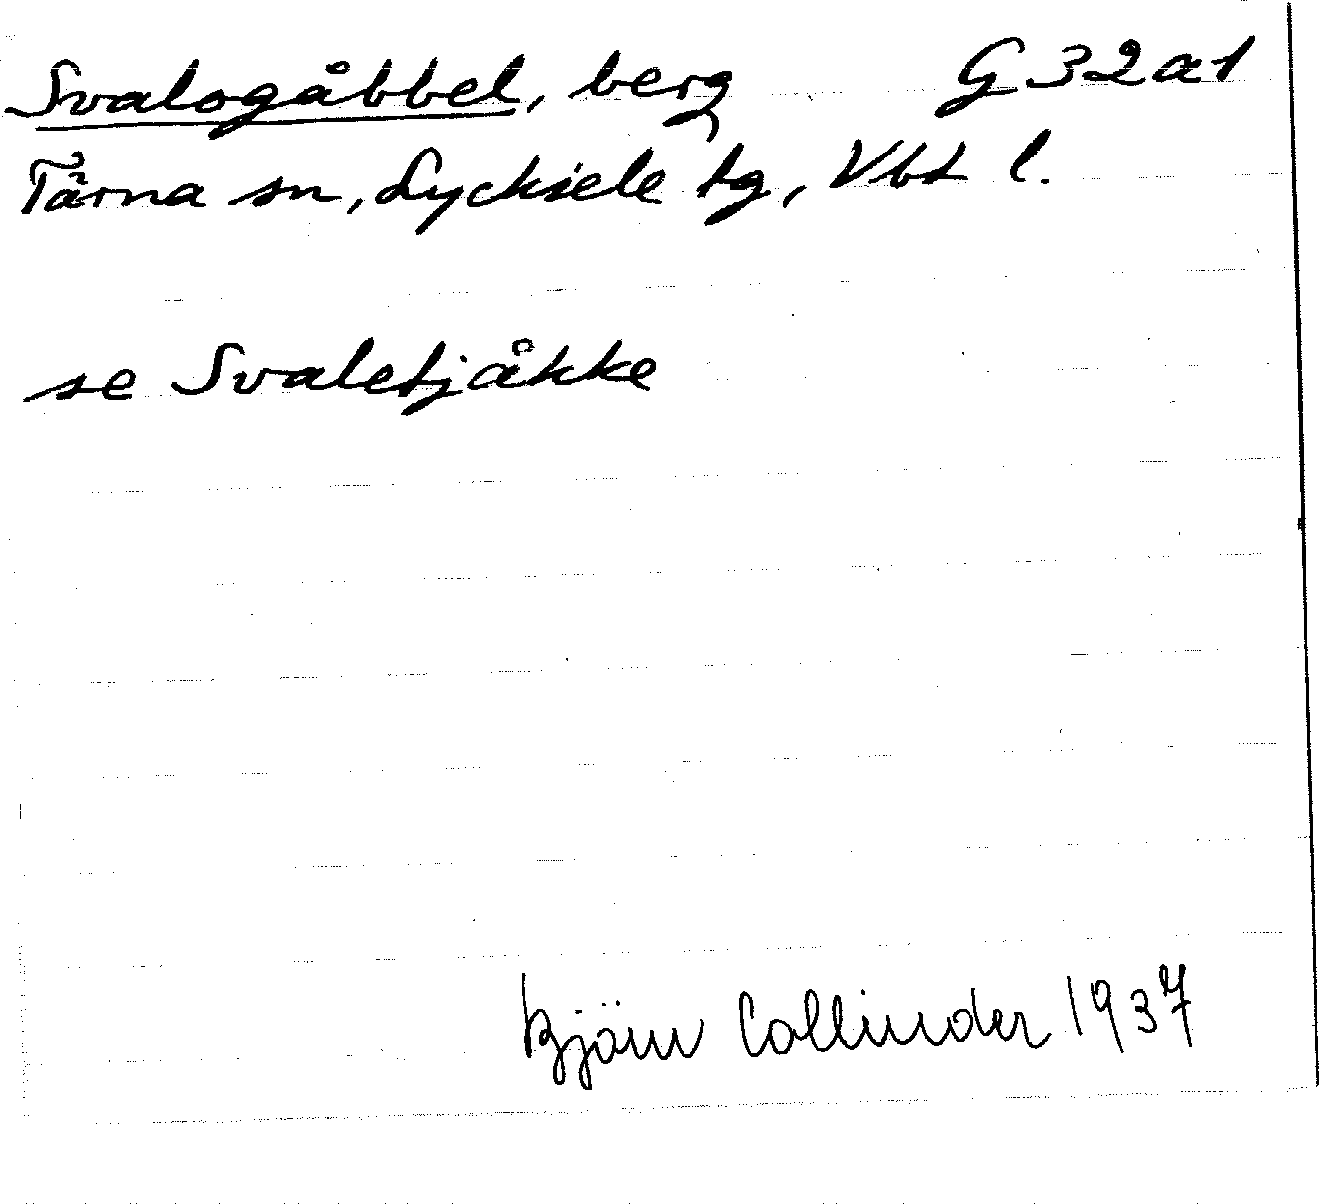 Svalogåbbel, berg G 32 a 1
Tärna sn, Lycksele tg, Vbt l.
se Svaletjåkke
Björn Collinder 1937